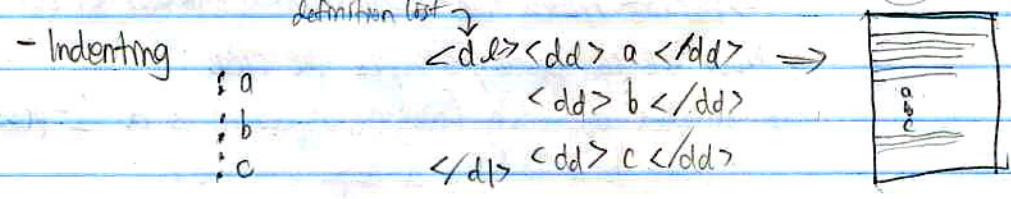 definition list
- Indenting <dl><dd> a </dd> ⇒
: a
<dd> b </dd>
: b
<dd> c </dd>
: c </dl>
a
b
c